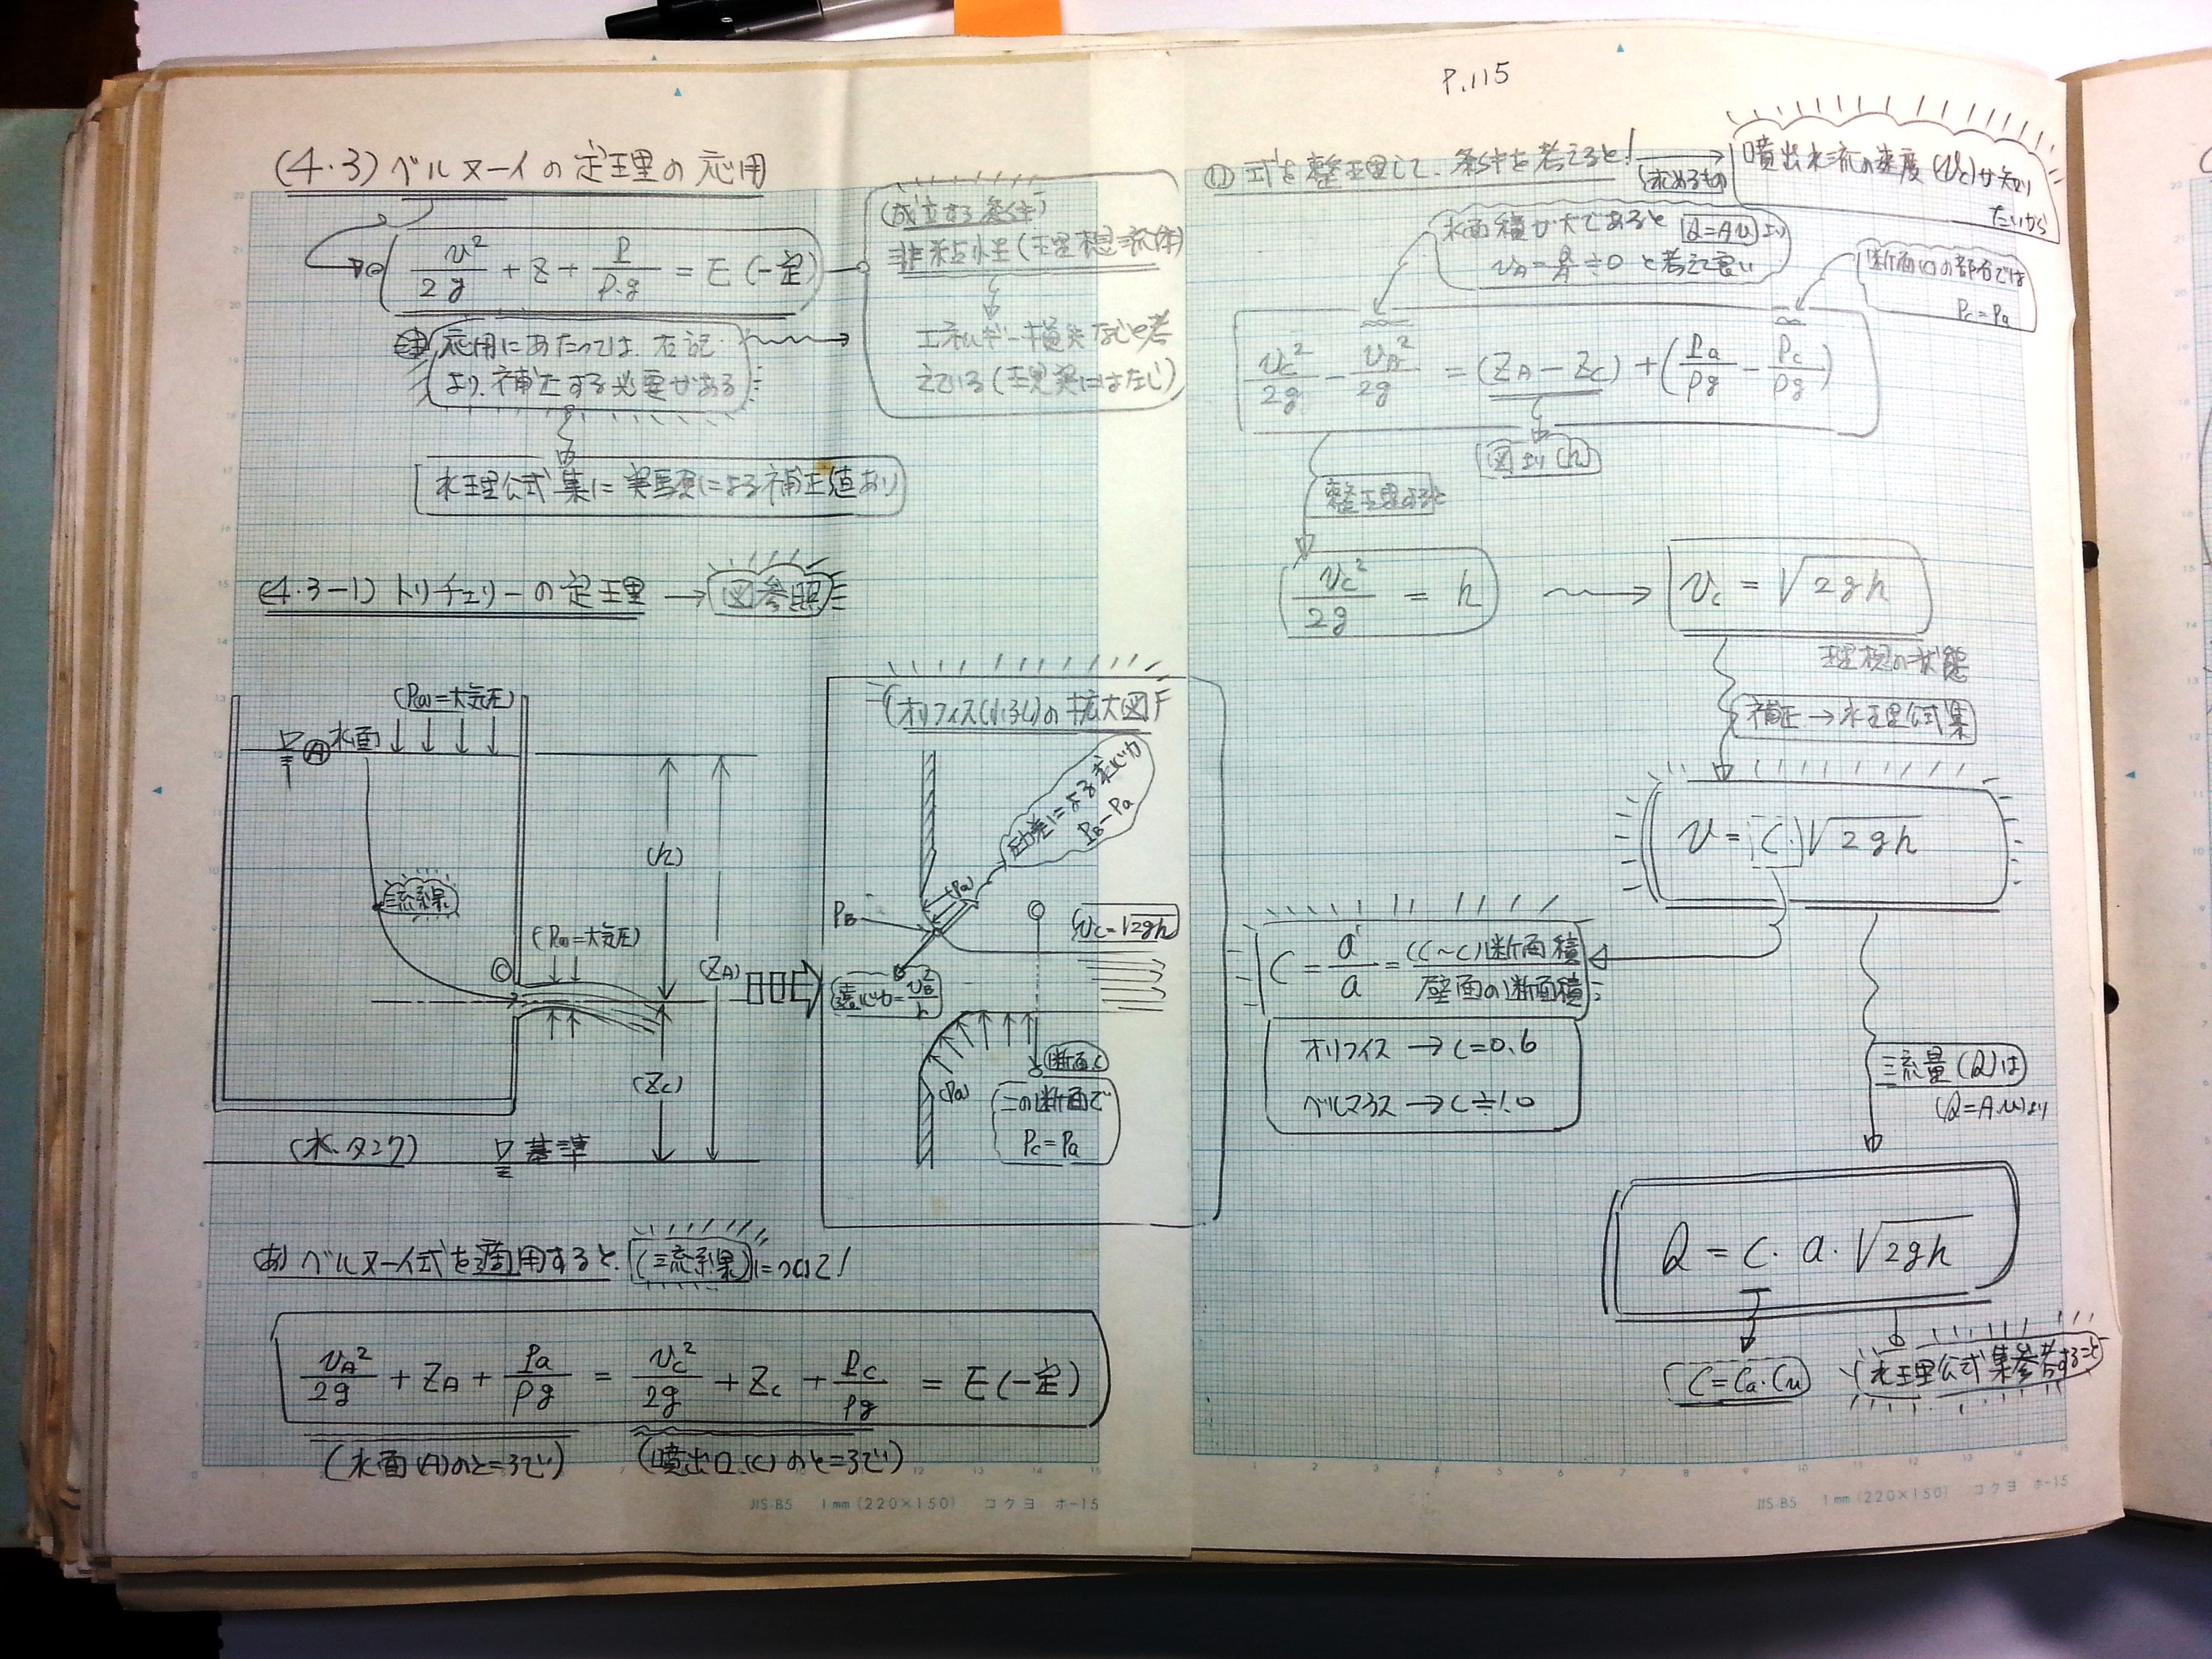 P.115
(4.3) ベルヌーイの定理の応用
v²/2g + Z + P/ρ.g = E (一定)
(成立する条件)
非粘性 (理想流体)
エネルギー損失なしと考
えている (現実にはなし)
応用にあたっては、右記
より、補正する必要がある
水理公式集に実験による補正値あり
(4.3-1) トリチェリーの定理 → 図参照
(Pa)=大気圧)
Ⓐ 水面
(h)
流線
(Pa=大気圧)
Ⓒ
(ZA)
(Zc)
(水タンク)
基準
(オリフィス(小さい)の拡大図)
圧力差による求心力
PB-Pa
(Pa)
PB
Ⓒ
vc=√2gh
遠心力=vB²/r
断面C
(Pa)
この断面で
Pc=Pa
(あ) ベルヌーイ式を適用すると、(流線)について!
vA²/2g + ZA + Pa/ρg = vc²/2g + Zc + Pc/ρg = E (一定)
(水面(A)のところで)
(噴出口.(C)のところで)
JIS-B5 1mm (220×150) コクヨ ホ-15
(い) 式を整理して、条件を考えると!
(求めるもの)
噴出水流の速度(vc)が知り
たいから
水面積が大であると Q=Av より
vA=Q/A≒0 と考えて良い
断面(C)の部分では
Pc=Pa
vc²/2g - vA²/2g = (ZA-Zc) + (Pa/ρg - Pc/ρg)
図より(h)
整理すると
vc²/2g = h
vc = √2gh
理想の状態
補正→水理公式集
v = C.√2gh
C = a'/a = (C~C)断面積/壁面の断面積
オリフィス → C=0.6
ベルマウス → C≒1.0
流量(Q)は
(Q=A.v)より
Q = C. a. √2gh
C=Ca.Cv
水理公式集参考すること
JIS-B5 1mm (220×150) コクヨ ホ-15